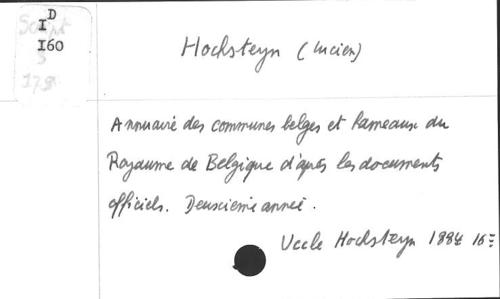 I D
I60
Script
S
178
Hochsteyn (Lucien)
Annuaire des communes belges et hameaux du
Royaume de Belgique d'après les documents
officiels. Deuxième année.
Uccle Hochsteyn 1884 16=